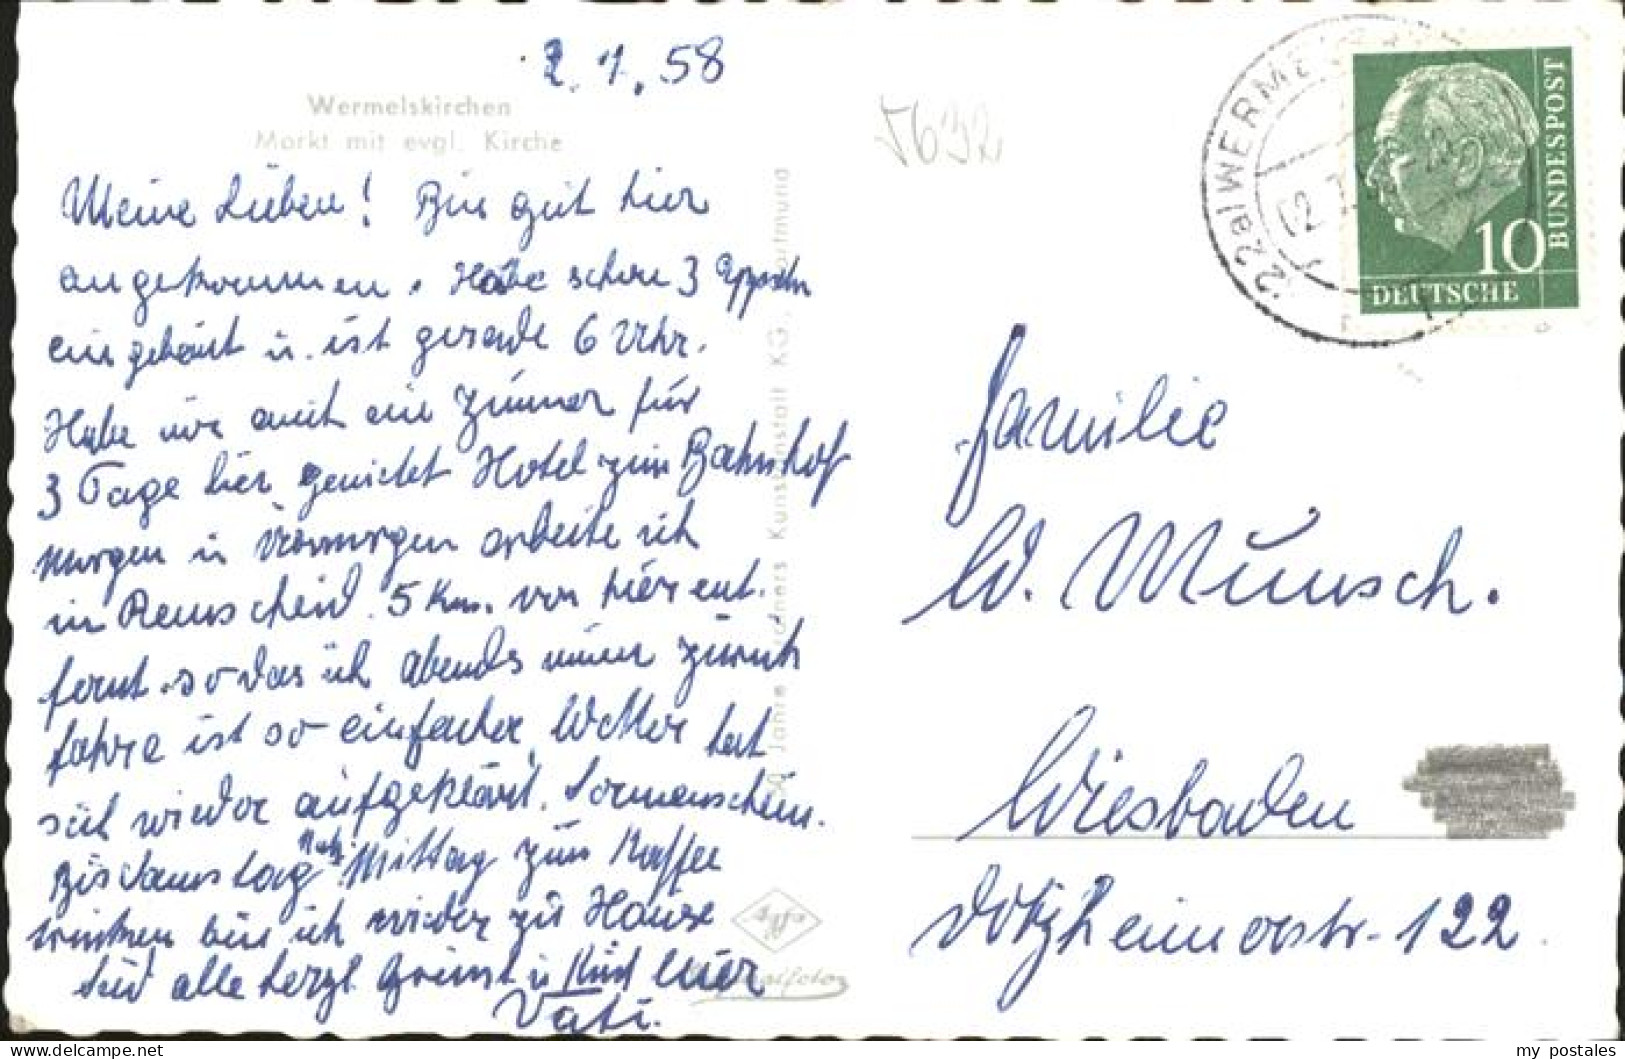 2.1.58
Wermelskirchen
Markt mit evgl. Kirche
Meine Lieben! Bin gut hier
angekommen. Habe schon 3
eingebaut u. ist gerade 6 Uhr.
Habe mir auch ein Zimmer für
3 Tage hier gemietet Hotel zum Bahnhof
Morgen u. arbeite ich
in Remscheid. 5 Km. von hier ent-
fernt. so das ich abends immer zurück
fahre ist so einfacher. Wetter hat
sich wieder aufgeklärt. Sonnenschein.
Bis Samstag Nach. Mittag zum Kaffee
trinken bin ich wieder zu Hause
Seid alle herzl. Grüßt u Küßt Euer
Vati.
50 Jahre Kirchners Kunstanstalt KG., Dortmund
Agfa
Originalfoto
5632
22a WERMELSKIRCHEN
DEUTSCHE
BUNDESPOST
10
Familie
W. Münsch.
Wiesbaden
Dotzheimerstr. 122
my postales